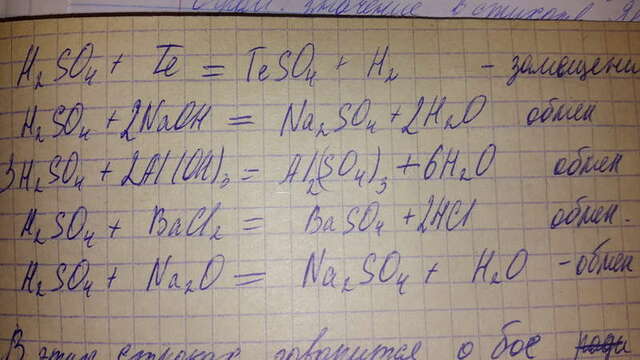 значение в стихах
H₂SO₄ + Te = TeSO₄ + H₂ - замещени
H₂SO₄ + 2NaOH = Na₂SO₄ + 2H₂O обмен
3H₂SO₄ + 2Al(OH)₃ = Al₂(SO₄)₃ + 6H₂O обмен
H₂SO₄ + BaCl₂ = BaSO₄ + 2HCl обмен.
H₂SO₄ + Na₂O = Na₂SO₄ + H₂O - обмен
В этих строках говорится о бое